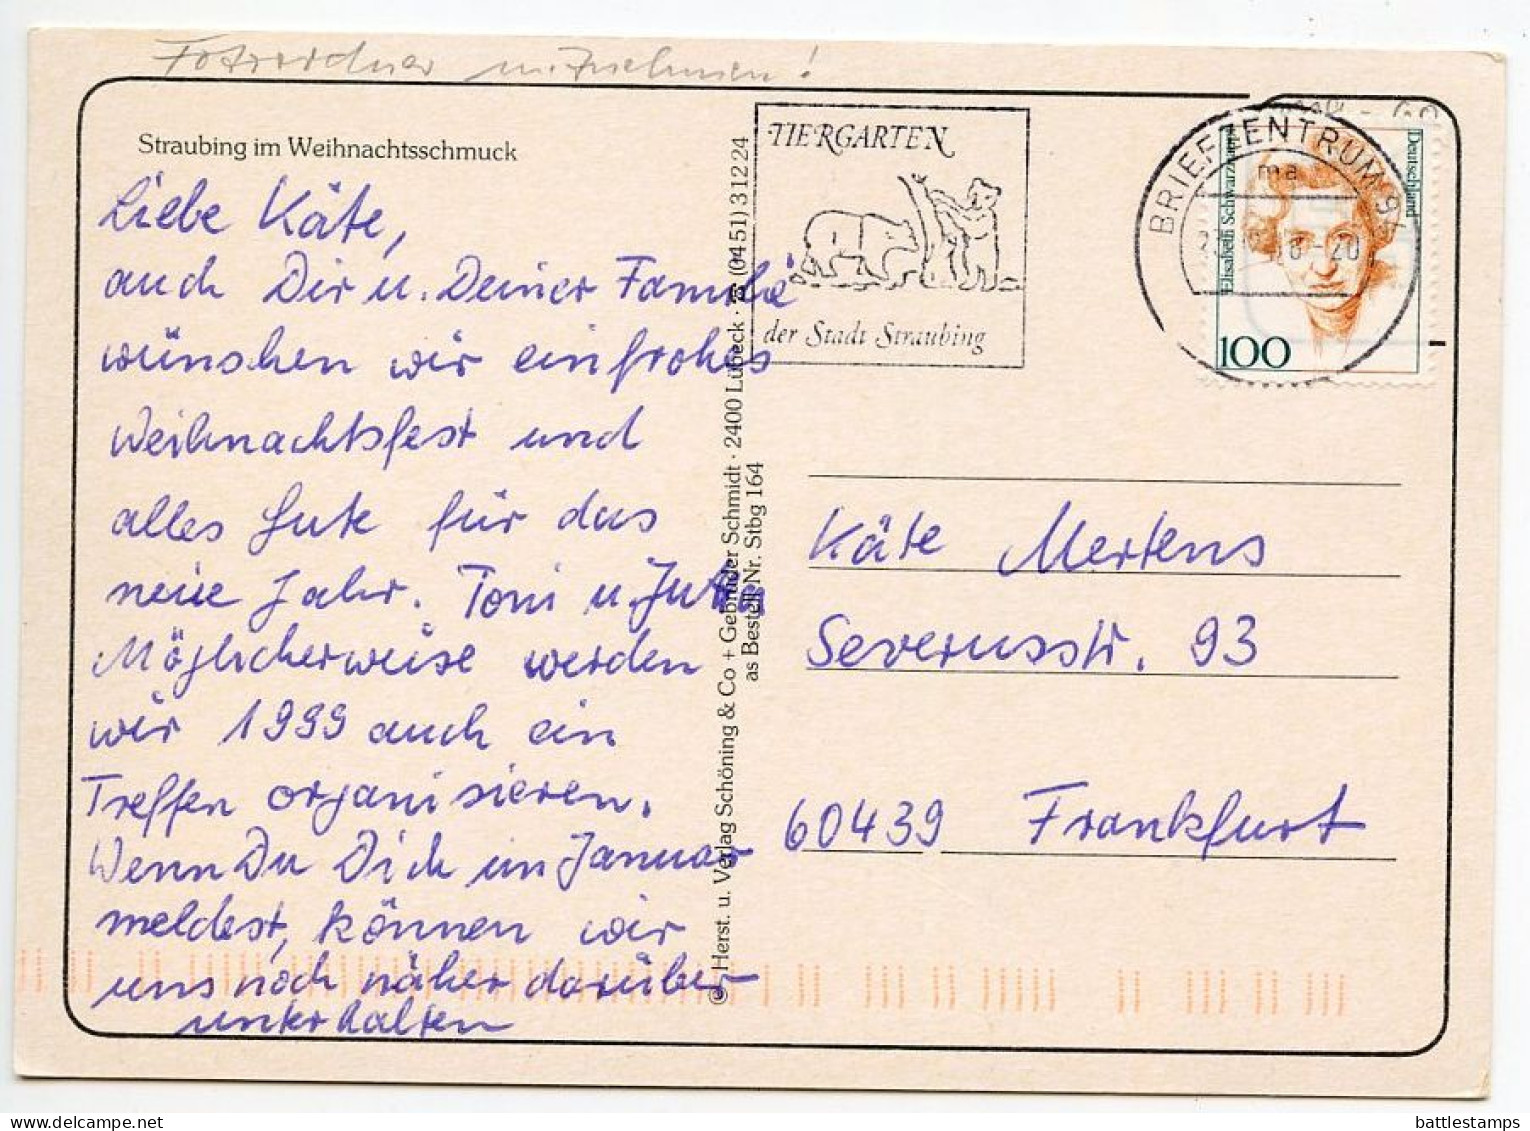 Fotoordner mitnehmen!
Straubing im Weihnachtsschmuck
Liebe Käte,
auch Dir u. Deiner Familie
wünschen wir ein frohes
Weihnachtsfest und
alles Gute für das
neue Jahr. Toni u. Jutta
Möglicherweise werden
wir 1999 auch ein
Treffen organisieren.
Wenn Du Dich im Januar
meldest, können wir
uns noch näher darüber
unterhalten
© Herst. u. Verlag Schöning & Co + Gebrüder Schmidt · 2400 Lübeck · ☎ (04 51) 3 12 24
as Bestell-Nr. Stbg 164
TIERGARTEN
der Stadt Straubing
BRIEFZENTRUM 94
ma
20
Deutschland
Elisabeth Schwarzhaupt
100
Käte Mertens
Severusstr. 93
60439 Frankfurt
battlestamps